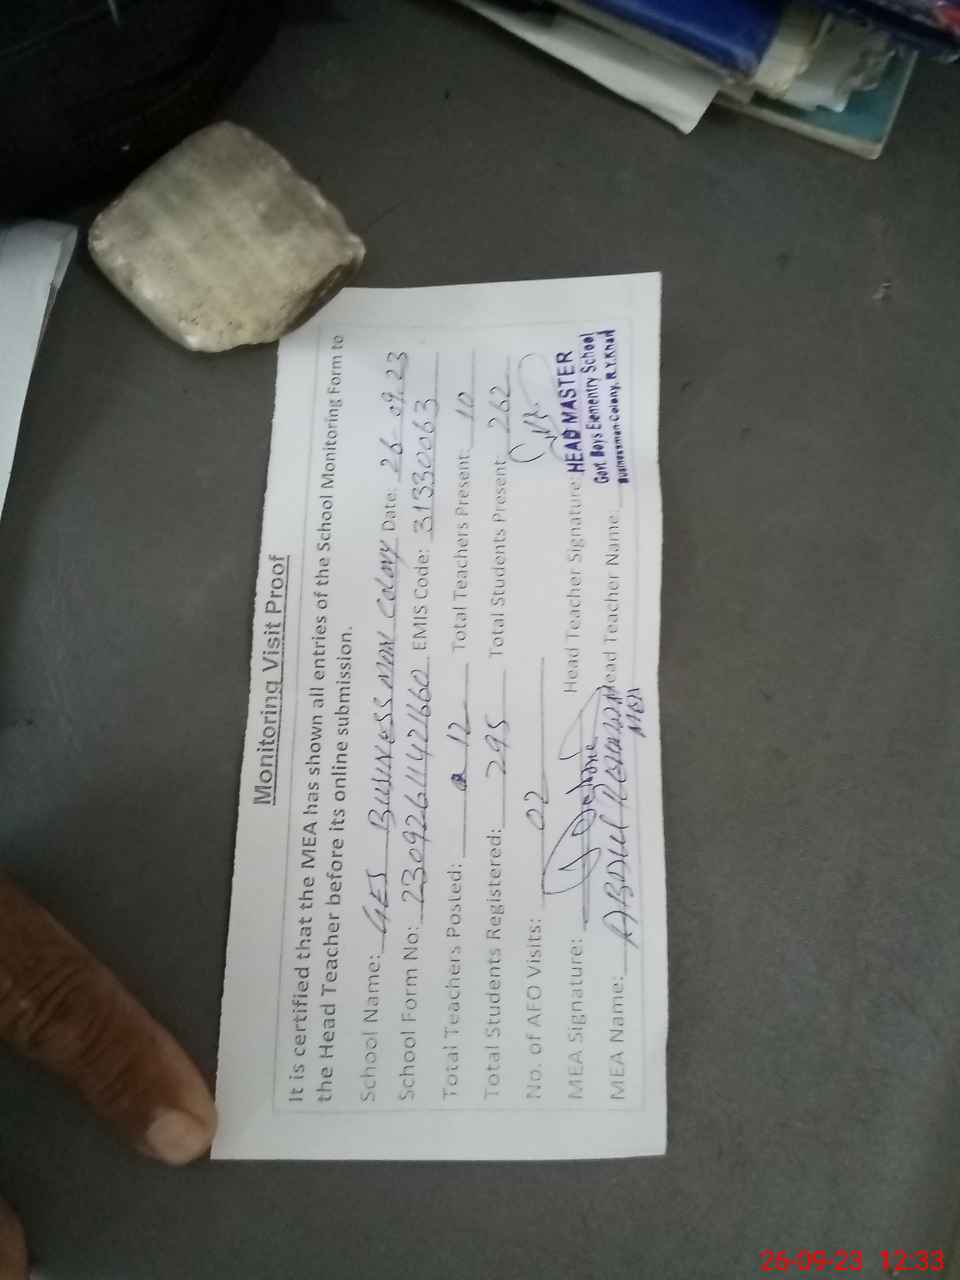 Monitoring Visit Proof
It is certified that the MEA has shown all entries of the School Monitoring Form to
the Head Teacher before its online submission.
School Name: GES BUSINESS MAN COLONY Date: 26-09-23
School Form No: 230926111421660 EMIS Code: 31330063
Total Teachers Posted: 12 Total Teachers Present: 10
Total Students Registered: 295 Total Students Present: 262
No. of AEO Visits: 02
MEA Signature: Head Teacher Signature:
HEAD MASTER
Govt. Boys Elementry School
Businessman Colony, R.Y.Khan
MEA Name: ABDUL Head Teacher Name:
MEA
26-09-23 12:33